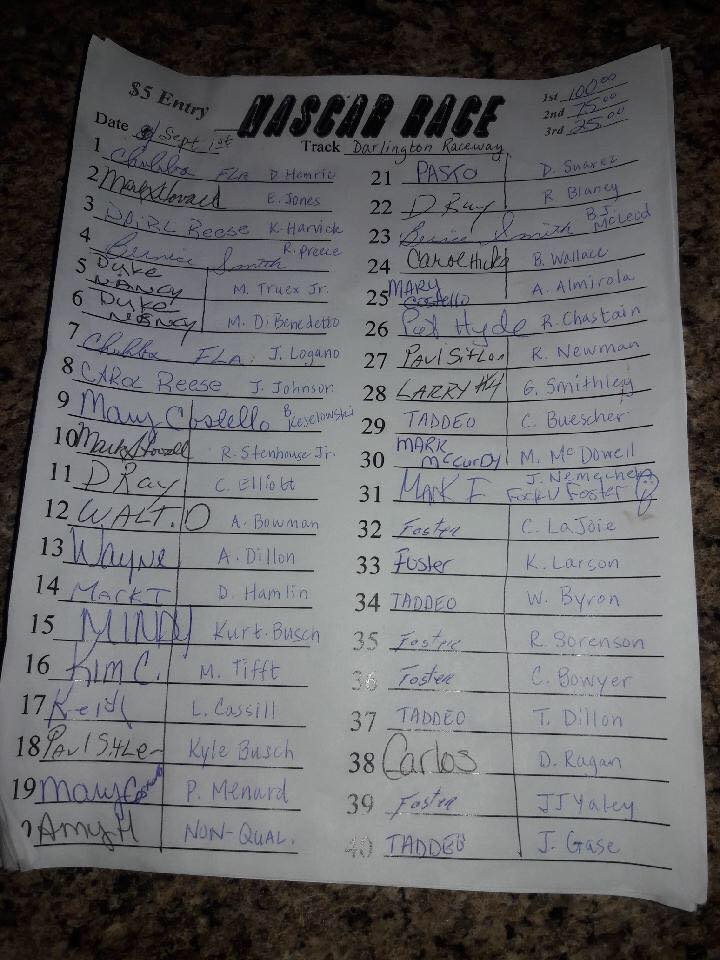 $5 Entry NASCAR RACE 1st 100.00
2nd 75.00
3rd 25.00
Date Sept 1st Track Darlington Raceway
1 Chubba FLA D Hemric
2 E. Jones
3 REESE K. Harvick
4 Bernice Smith R. Preece
5 DUKE NANCY M. Truex Jr.
6 DUKE NANCY M. DiBenedetto
7 Chubba FLA. J. Logano
8 CAROL REESE J. Johnson
9 Mary Costello B. Keselowski
10 R. Stenhouse Jr.
11 D RAY C. Elliott
12 WALT. O A. Bowman
13 Wayne A. Dillon
14 MARK I D. Hamlin
15 MINDY Kurt. Busch
16 Kim C. M. Tifft
17 L. Cassill
18 Kyle Busch
19 P. Menard
Amy H NON-QUAL.
21 PASKO D. Suarez
22 D Ray R. Blaney
23 Bernice Smith B.J. McLeod
24 Carol Hicks B. Wallace
25 MARY Costello A. Almirola
26 Pat Hyde R. Chastain
27 R. Newman
28 LARRY #4 G. Smithley
29 TADDEO C. Buescher
30 MARK McCURDY M. McDowell
31 Mark I J. Nemechek Fock U Foster
32 Foster C. LaJoie
33 Foster K. Larson
34 TADDEO W. Byron
35 Foster R. Sorenson
36 Foster C. Bowyer
37 TADDEO T. Dillon
38 Carlos D. Ragan
39 Foster JJ Yaley
40 TADDEO J. Gase